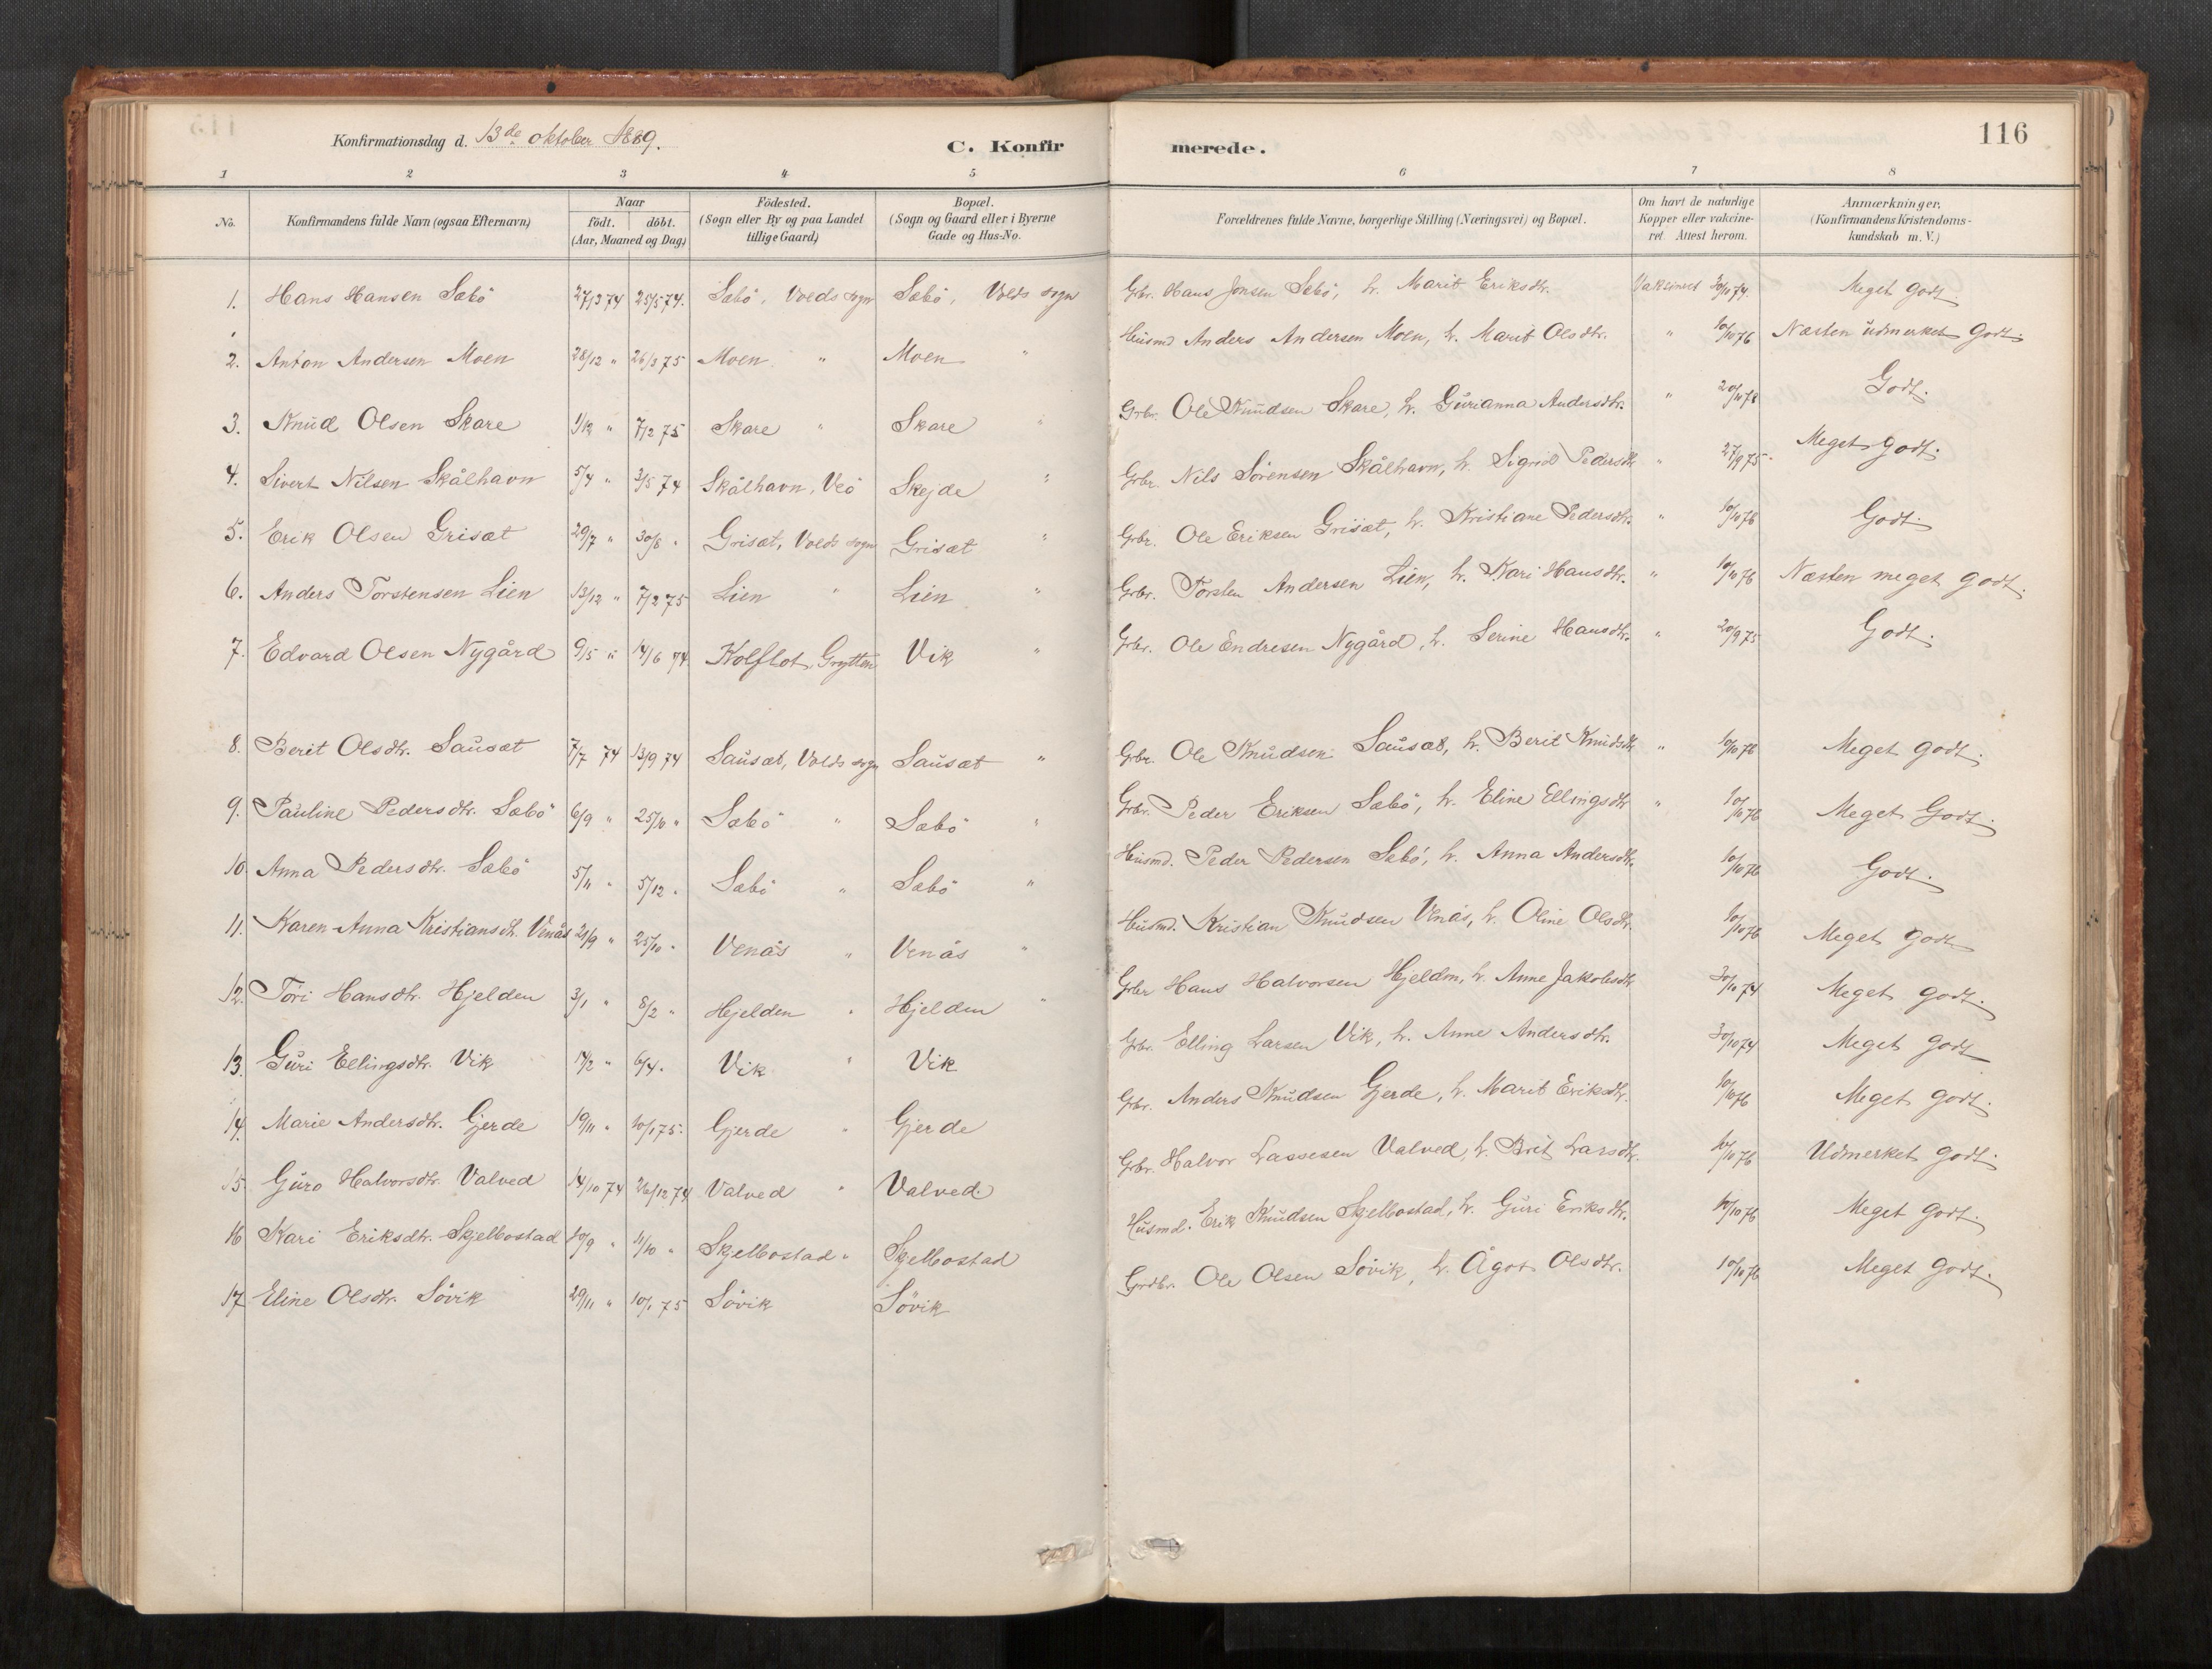 Konfirmationsdag d. 13de oktober 1889.
C. Konfirmerede.
116
1 2 3 4 5 6 7 8
No. Konfirmandens fulde Navn (ogsaa Efternavn) Naar födt. döbt. (Aar, Maaned og Dag) Födested. (Sogn eller By og paa Landet tillige Gaard) Bopæl. (Sogn og Gaard eller i Byerne Gade og Hus-No. Forældrenes fulde Navne, borgerlige Stilling (Næringsvei) og Bopæl. Om havt de naturlige Kopper eller vakcineret. Attest herom. Anmærkninger, (Konfirmandens Kristendomskundskab m. V.)
1. Hans Hansen Sæbö 27/3 74 25/5 74. Sæbö, Volds sogn Sæbö, Volds sogn Grbr. Hans Jonsen Sæbö, h. Marit Eriksdtr. Vaksineret 30/10 74. Meget godt
2. Anton Andersen Moen 28/12 " 26/3 75 Moen " Moen " Husmd Anders Andersen Moen, h. Marit Olsdtr. " 10/10 76 Næsten udmerket godt.
3. Knud Olsen Skare 1/12 " 7/2 75 Skare " Skare " Grbr. Ole Knudsen Skare, h. Gurianna Andersdtr. " 20/10 78 Godt.
4. Sivert Nilsen Skålhavn 5/4 " 3/5 74 Skålhavn, Veö Skejde " Grbr. Nils Sörensen Skålhavn, h. Sigrid Pedersdtr " 27/9 75. Meget godt.
5. Erik Olsen Grisæt 29/7 " 30/8 " Grisæt, Volds sogn Grisæt " Grbr. Ole Eriksen Grisæt, h. Kristiane Pedersdtr. " 10/10 76 Godt.
6. Anders Torstensen Lien 13/12 " 7/2 75 Lien " Lien " Grbr. Torsten Andersen Lien, h. Kari Hansdtr. " 10/10 76 Næsten meget godt.
7. Edvard Olsen Nygård 9/5 " 14/6 74. Kolflot, Grytten Vik " Grbr. Ole Endresen Nygård, h. Serine Hansdtr. " 20/9 75 Godt.
8. Berit Olsdtr. Sausæt 7/7 74 13/9 74 Sausæt, Volds sogn Sausæt " Grbr. Ole Knudsen Sausæt, h. Berit Knudsdtr " 10/10 76 Meget godt.
9. Pauline Pedersdtr. Sæbö 6/9 " 25/10 " Sæbö " Sæbö " Grbr. Peder Eriksen Sæbö, h. Eline Ellingsdtr " 10/10 76 Meget Godt.
10. Anna Pedersdtr. Sæbö 5/11 " 5/12 " Sæbö " Sæbö " Husmd. Peder Pedersen Sæbö, h. Anna Andersdtr. 10/10 76 Godt.
11. Karen-Anna Kristiansdt. Venås 21/9 " 25/10 " Venås " Venås " Husmd. Kristian Knudsen Venås, h. Oline Olsdtr. 10/10 76 Meget godt
12. Töri Hansdtr. Hjelden 3/1 " 8/2 " Hjelden " Hjelden " Grbr Hans Halvorsen Hjelden, h. Anne Jakobsdtr 30/10 74 Meget godt.
13. Guri Ellingsdtr. Vik 14/2 " 6/4 " Vik " Vik Grbr. Elling Larsen Vik, h. Anne Andersdtr. 30/10 74 Meget godt
14. Marie Andersdtr. Gjerde 19/11 " 10/1 75. Gjerde " Gjerde Grbr. Anders Knudsen Gjerde, h. Marit Eriksdtr. 10/10 76 Meget godt.
15. Guro Halvorsdtr. Valved 14/10 74 26/12 74 Valved " Valved. Grbr. Halvor Lassesen Valved, h. Brit Larsdtr. 10/10 76 Udmerket godt.
16 Kari Eriksdtr. Skjelbostad 10/9 " 11/10 " Skjelbostad " Skjelbostad Husmd. Erik Knudsen Skjelbostad, h. Guri Eriksdtr. 10/10 76 Meget godt.
17 Eline Olsdtr. Sövik 29/11 " 10/1 75 Sövik Sövik Grdbr. Ole Olsen Sövik, h. Ågot Olsdtr. 10/10 76 Meget godt.